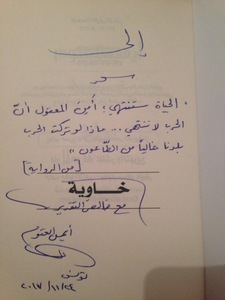 إلى
سحر
"الحياة ستنتهي؛ أمن المعقول أنّ
الحرب لا تنتهي... ماذا لو تركت الحرب
بلدنا خالياً من الطّاعون"
[من الرواية]
خاوية
مع خالص التقدير
أيمن العتوم
تونس
٢٠١٧/١١/٢٤